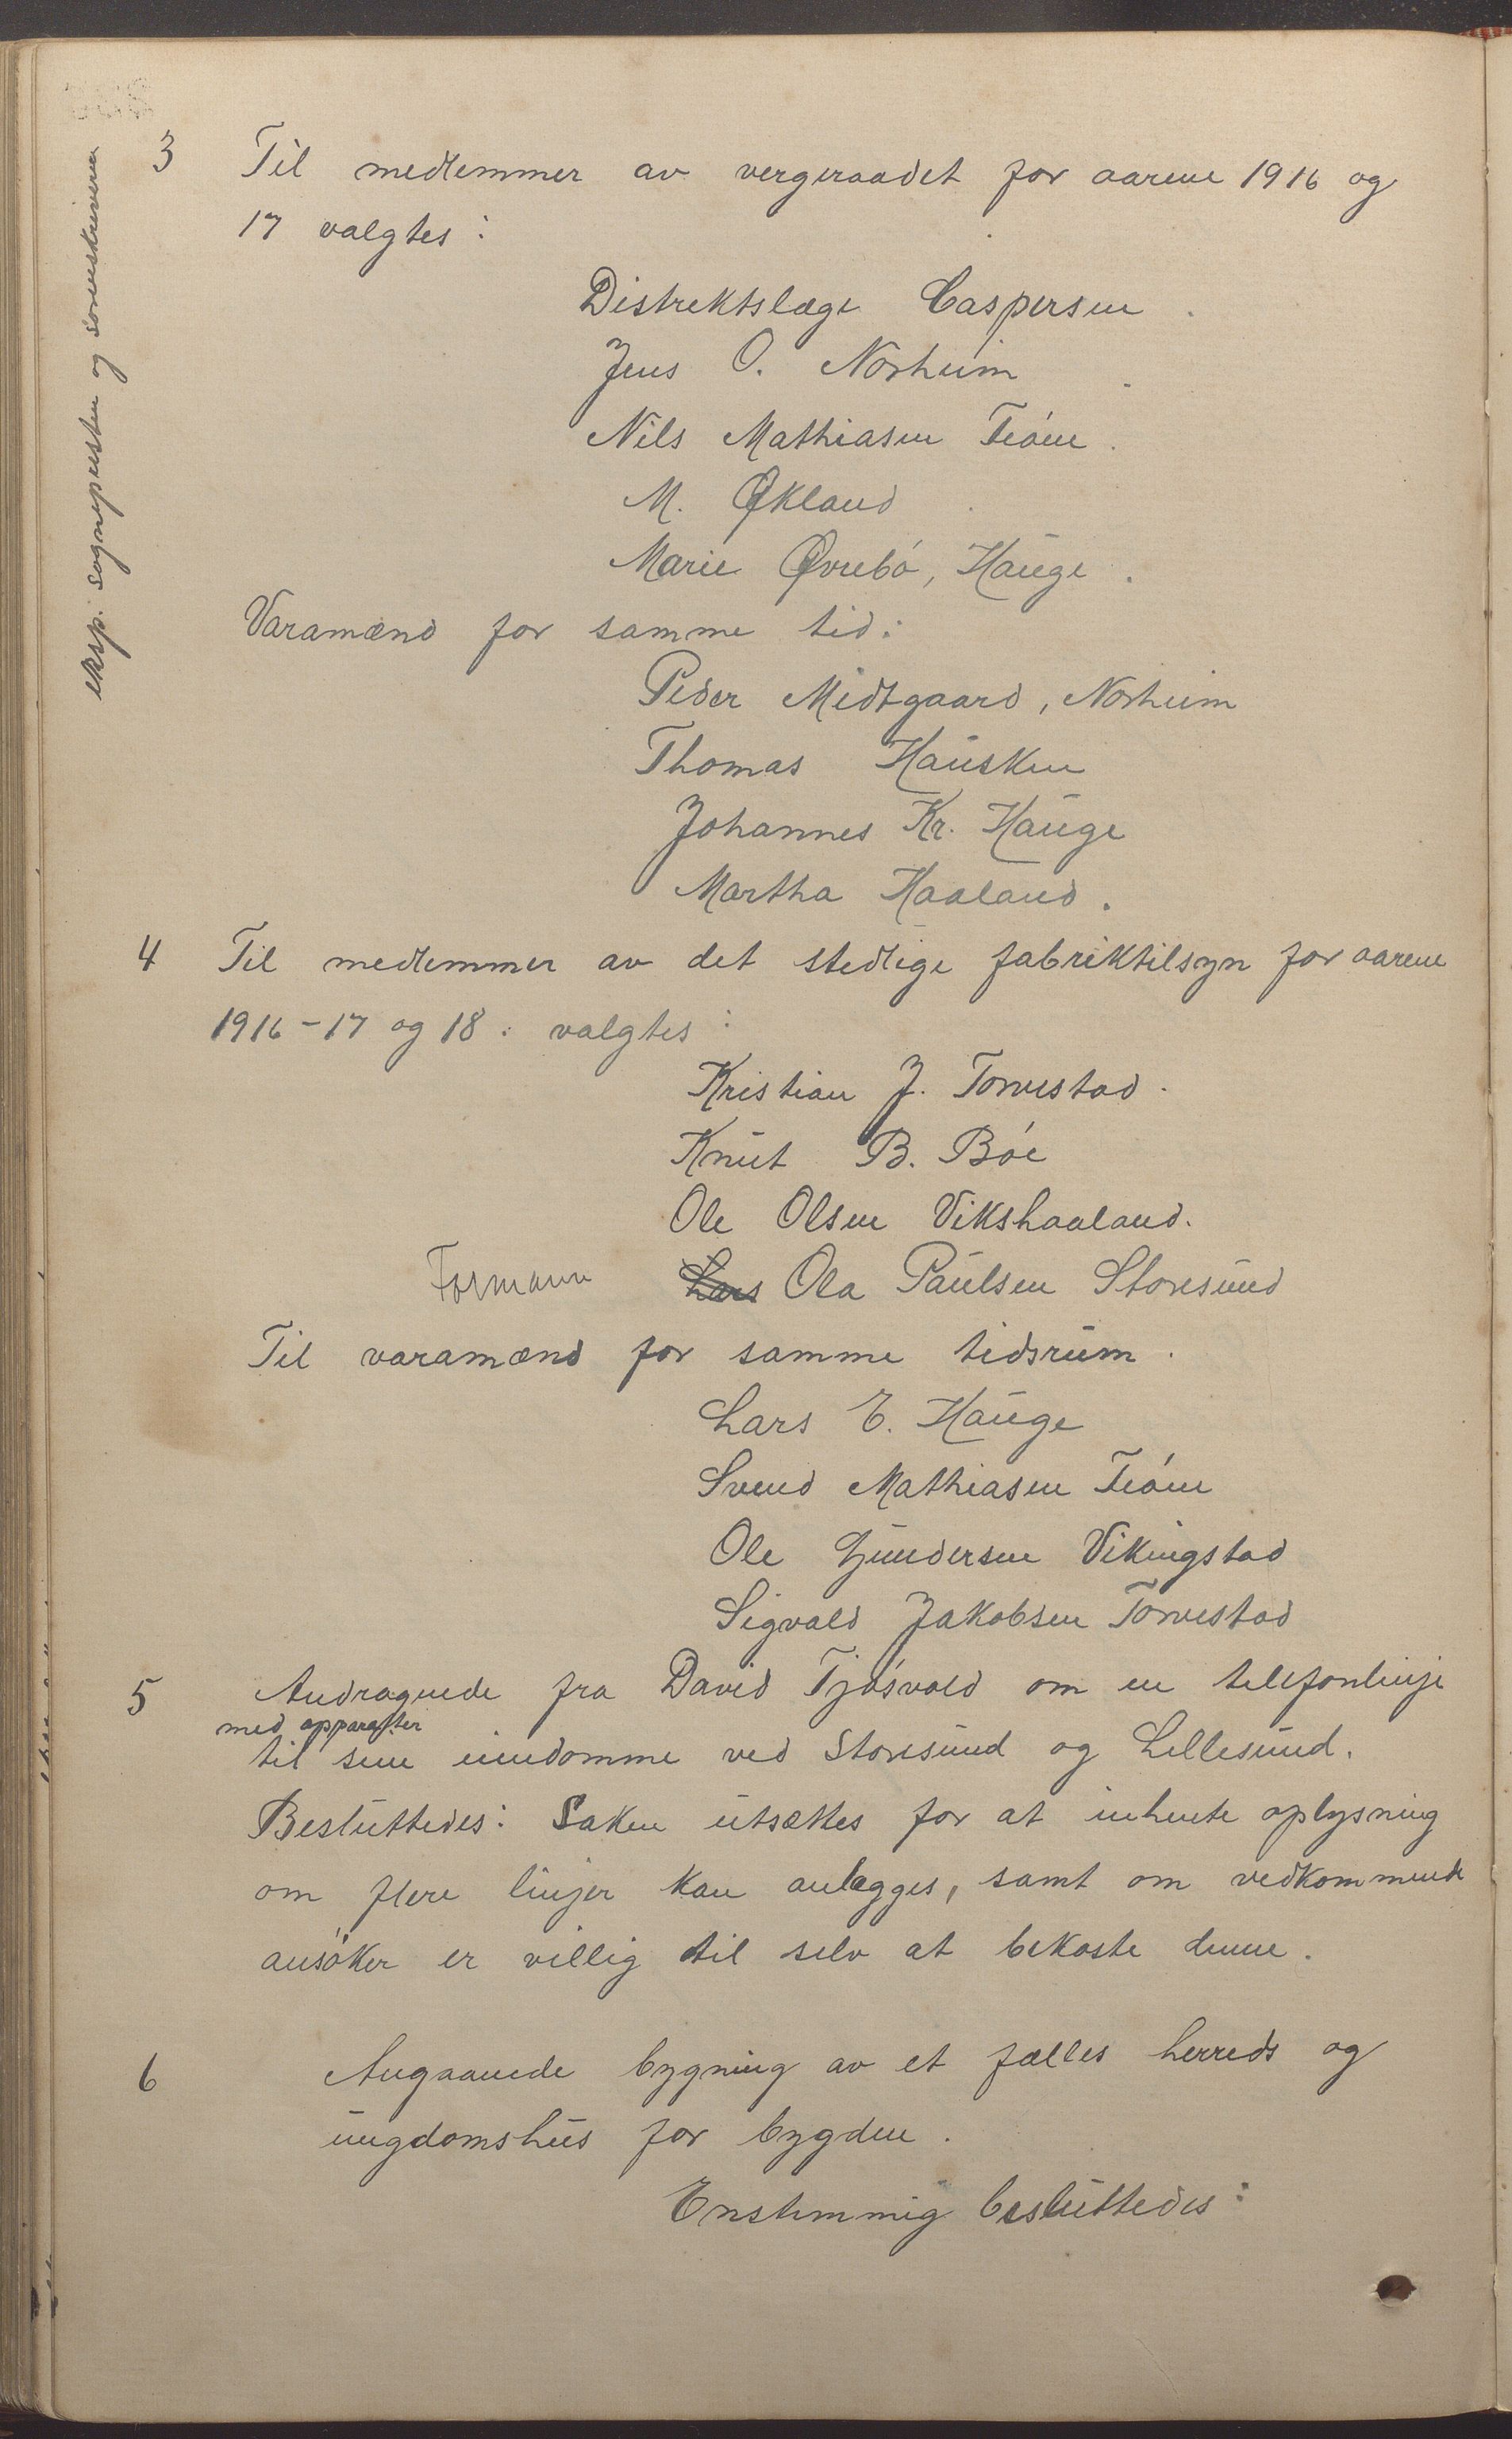 eksp. sognepresten og sorenskriveren
3 Til medlemmer av vergeraadet for aarene 1916 og
17 valgtes:
Distriktslæge Caspersen
Jens O. Norheim
Nils Mathiasen Fiöen
M. Økland
Marie Øvrebö, Hauge.
Varamænd for samme tid:
Peder Midtgaard, Norheim
Thomas Hausken
Johannes Kr. Hauge
Martha Haaland.
4 Til medlemmer av det stedlige fabriktilsyn for aarene
1916-17 og 18. valgtes:
Kristian J. Torvestad.
Knut B. Böe
Ole Olsen Vikshaaland.
Formann Lars Ola Paulsen Storesund
Til varamænd for samme tidsrum.
Lars E. Hauge
Svend Mathiasen Fiöen
Ole Gundersen Vikingstad
Sigvald Jakobsen Torvestad
5 Andragende fra David Tjösvold om en telefonlinje
med apparater
til sine eiendomme ved Storesund og Lillesund.
Besluttedes: Saken utsættes for at inhente oplysning
om flere linjer kan anlægges, samt om vedkommende
ansöker er villig til selv at bekoste denne.
6 Angaaende bygning av et fælles herreds og
ungdomshus for bygden.
Enstemmig besluttedes: